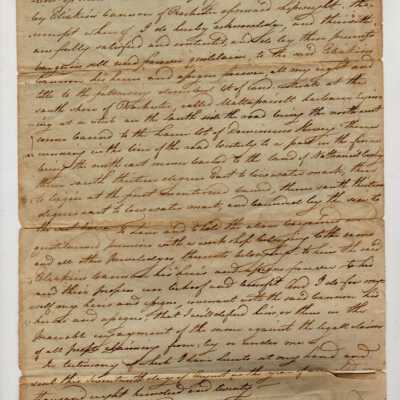 by Eliakim Cannon of Rochester aforesaid shipwright the
receipt whereof I do hereby acknowledge, and therewith
am fully satisfied and contented, and do by these presents
sell and forever quitclaim, to the said Eliakim
Cannon his heirs and assigns forever, all my right and
title to the following described lot of land situate at the
south shore of Rochester, called Mattapoisett harbour begin
ing at a stake on the South side the road being the northwest
corner bound to the house lot of thence
runing in the line of the road westerly to a post in the fence
being the north east corner bound to the land of Nathaniel
thence south thirteen degrees East to low water mark, then
to begin at the first mentioned bound, thence south thirteen
degrees east to low water mark, and bounded by the sea
To have and to hold the above bargained
quitclaimed premises with a work shop belonging to the same
and all other Priviledges, thereto belonging to him the said
Eliakim Cannon his heirs and assigns forever to his
and their proper use behoof and benefit And I do for my
self my heirs and assigns, covenant with the said Cannon his
heirs and assigns, that I will defend him or them in the
peaceable enjoyment of the same against the legal claims
of all people claiming from, by or under me
In testimony of which I have hereto set my hand and
seal this seventeenth day of August in the year of
thousand eight hundred and twenty